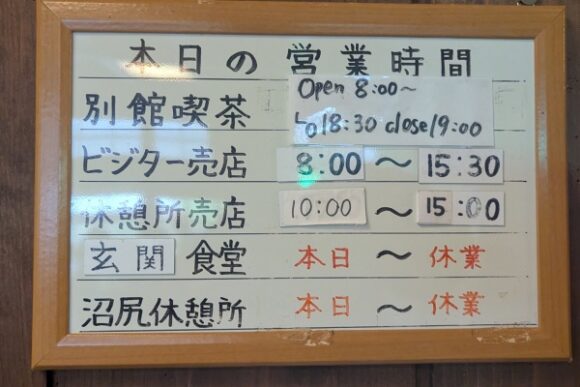 本日の営業時間
別館喫茶 Open 8:00~
LO18:30 close19:00
ビジター売店 8:00 〜 15:30
休憩所売店 10:00 〜 15:00
玄関食堂 本日 〜 休業
沼尻休憩所 本日 〜 休業